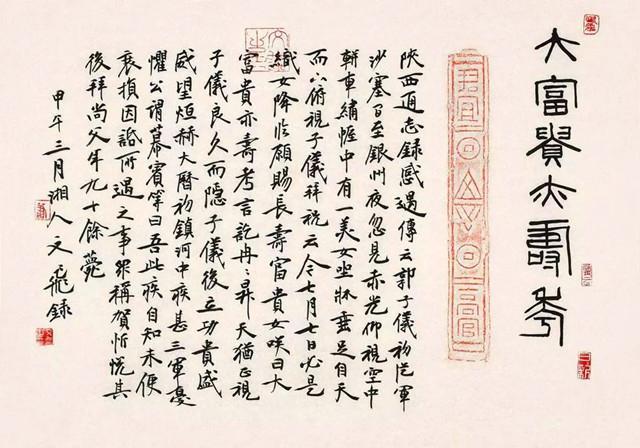 大富貴亦壽考
陝西通志錄感遇傳云郭子儀初從軍
沙塞間至銀州夜忽見赤光仰視空中
軿車繡幄中有一美女坐牀垂足自天
而下俯視子儀拜祝云今七月七日必是
織女降臨願賜長壽富貴女咲曰大
富貴亦壽考言訖冉〻昇天猶正視
子儀良久而隱子儀後立功貴盛
威望烜赫大曆初鎮河中疾甚三軍憂
懼公謂幕賓等曰吾此疾自知未便
衰損因話所遇之事眾稱賀忻悅其
後拜尚父年九十餘薨
甲午三月湘人文飛錄